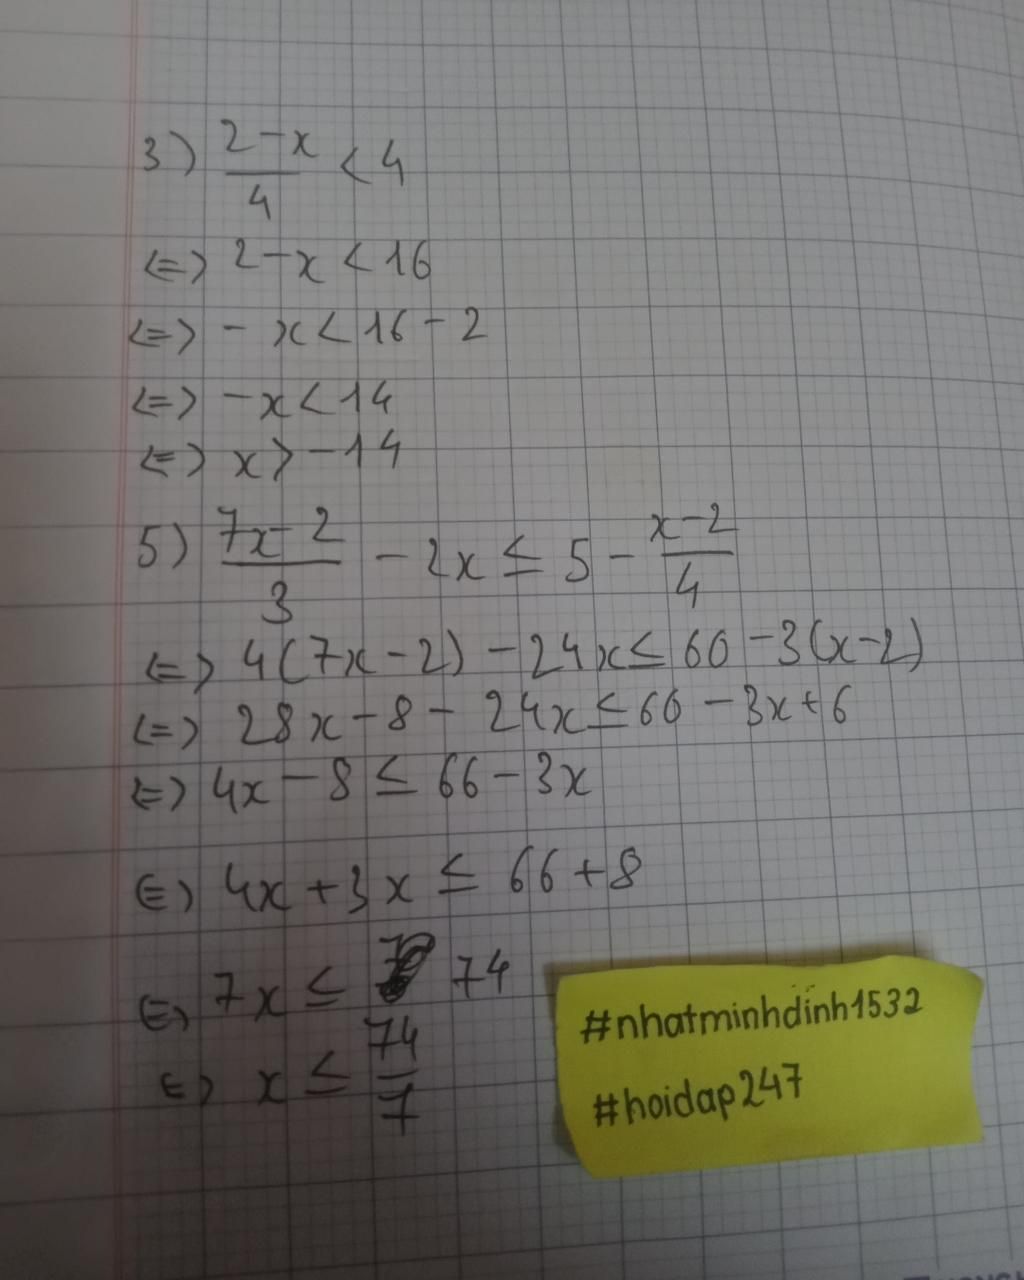 3) \frac{2-x}{4} < 4
<=> 2-x < 16
<=> -x < 16-2
<=> -x < 14
<=> x > -14
5) \frac{7x-2}{3} - 2x ≤ 5 - \frac{x-2}{4}
<=> 4(7x-2) - 24x ≤ 60 - 3(x-2)
<=> 28x - 8 - 24x ≤ 60 - 3x + 6
<=> 4x - 8 ≤ 66 - 3x
<=> 4x + 3x ≤ 66 + 8
<=> 7x ≤ 74
<=> x ≤ \frac{74}{7}
#nhatminhdinh1532
#hoidap247